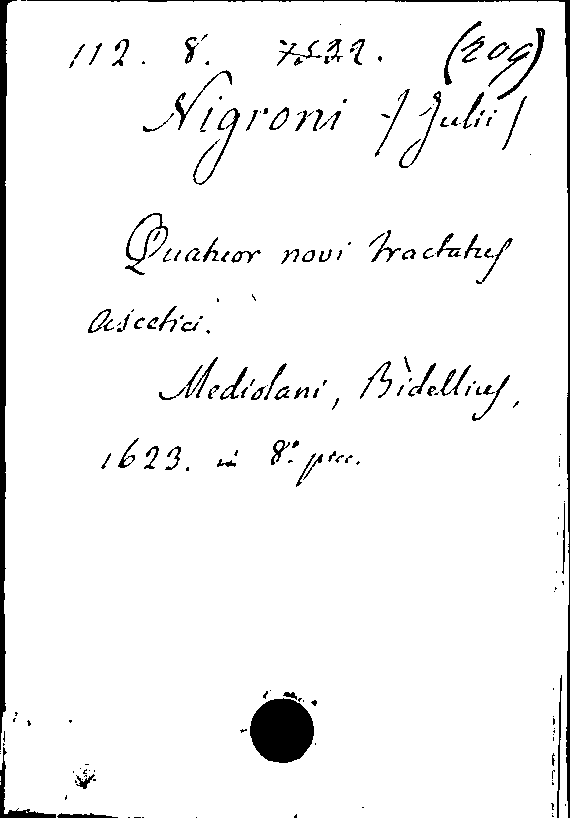 112. 8. 7532. (209)
Nigroni / Julii /
Quatuor novi tractatus
ascetici.
Mediolani, Bidellius,
1623. in 8º.